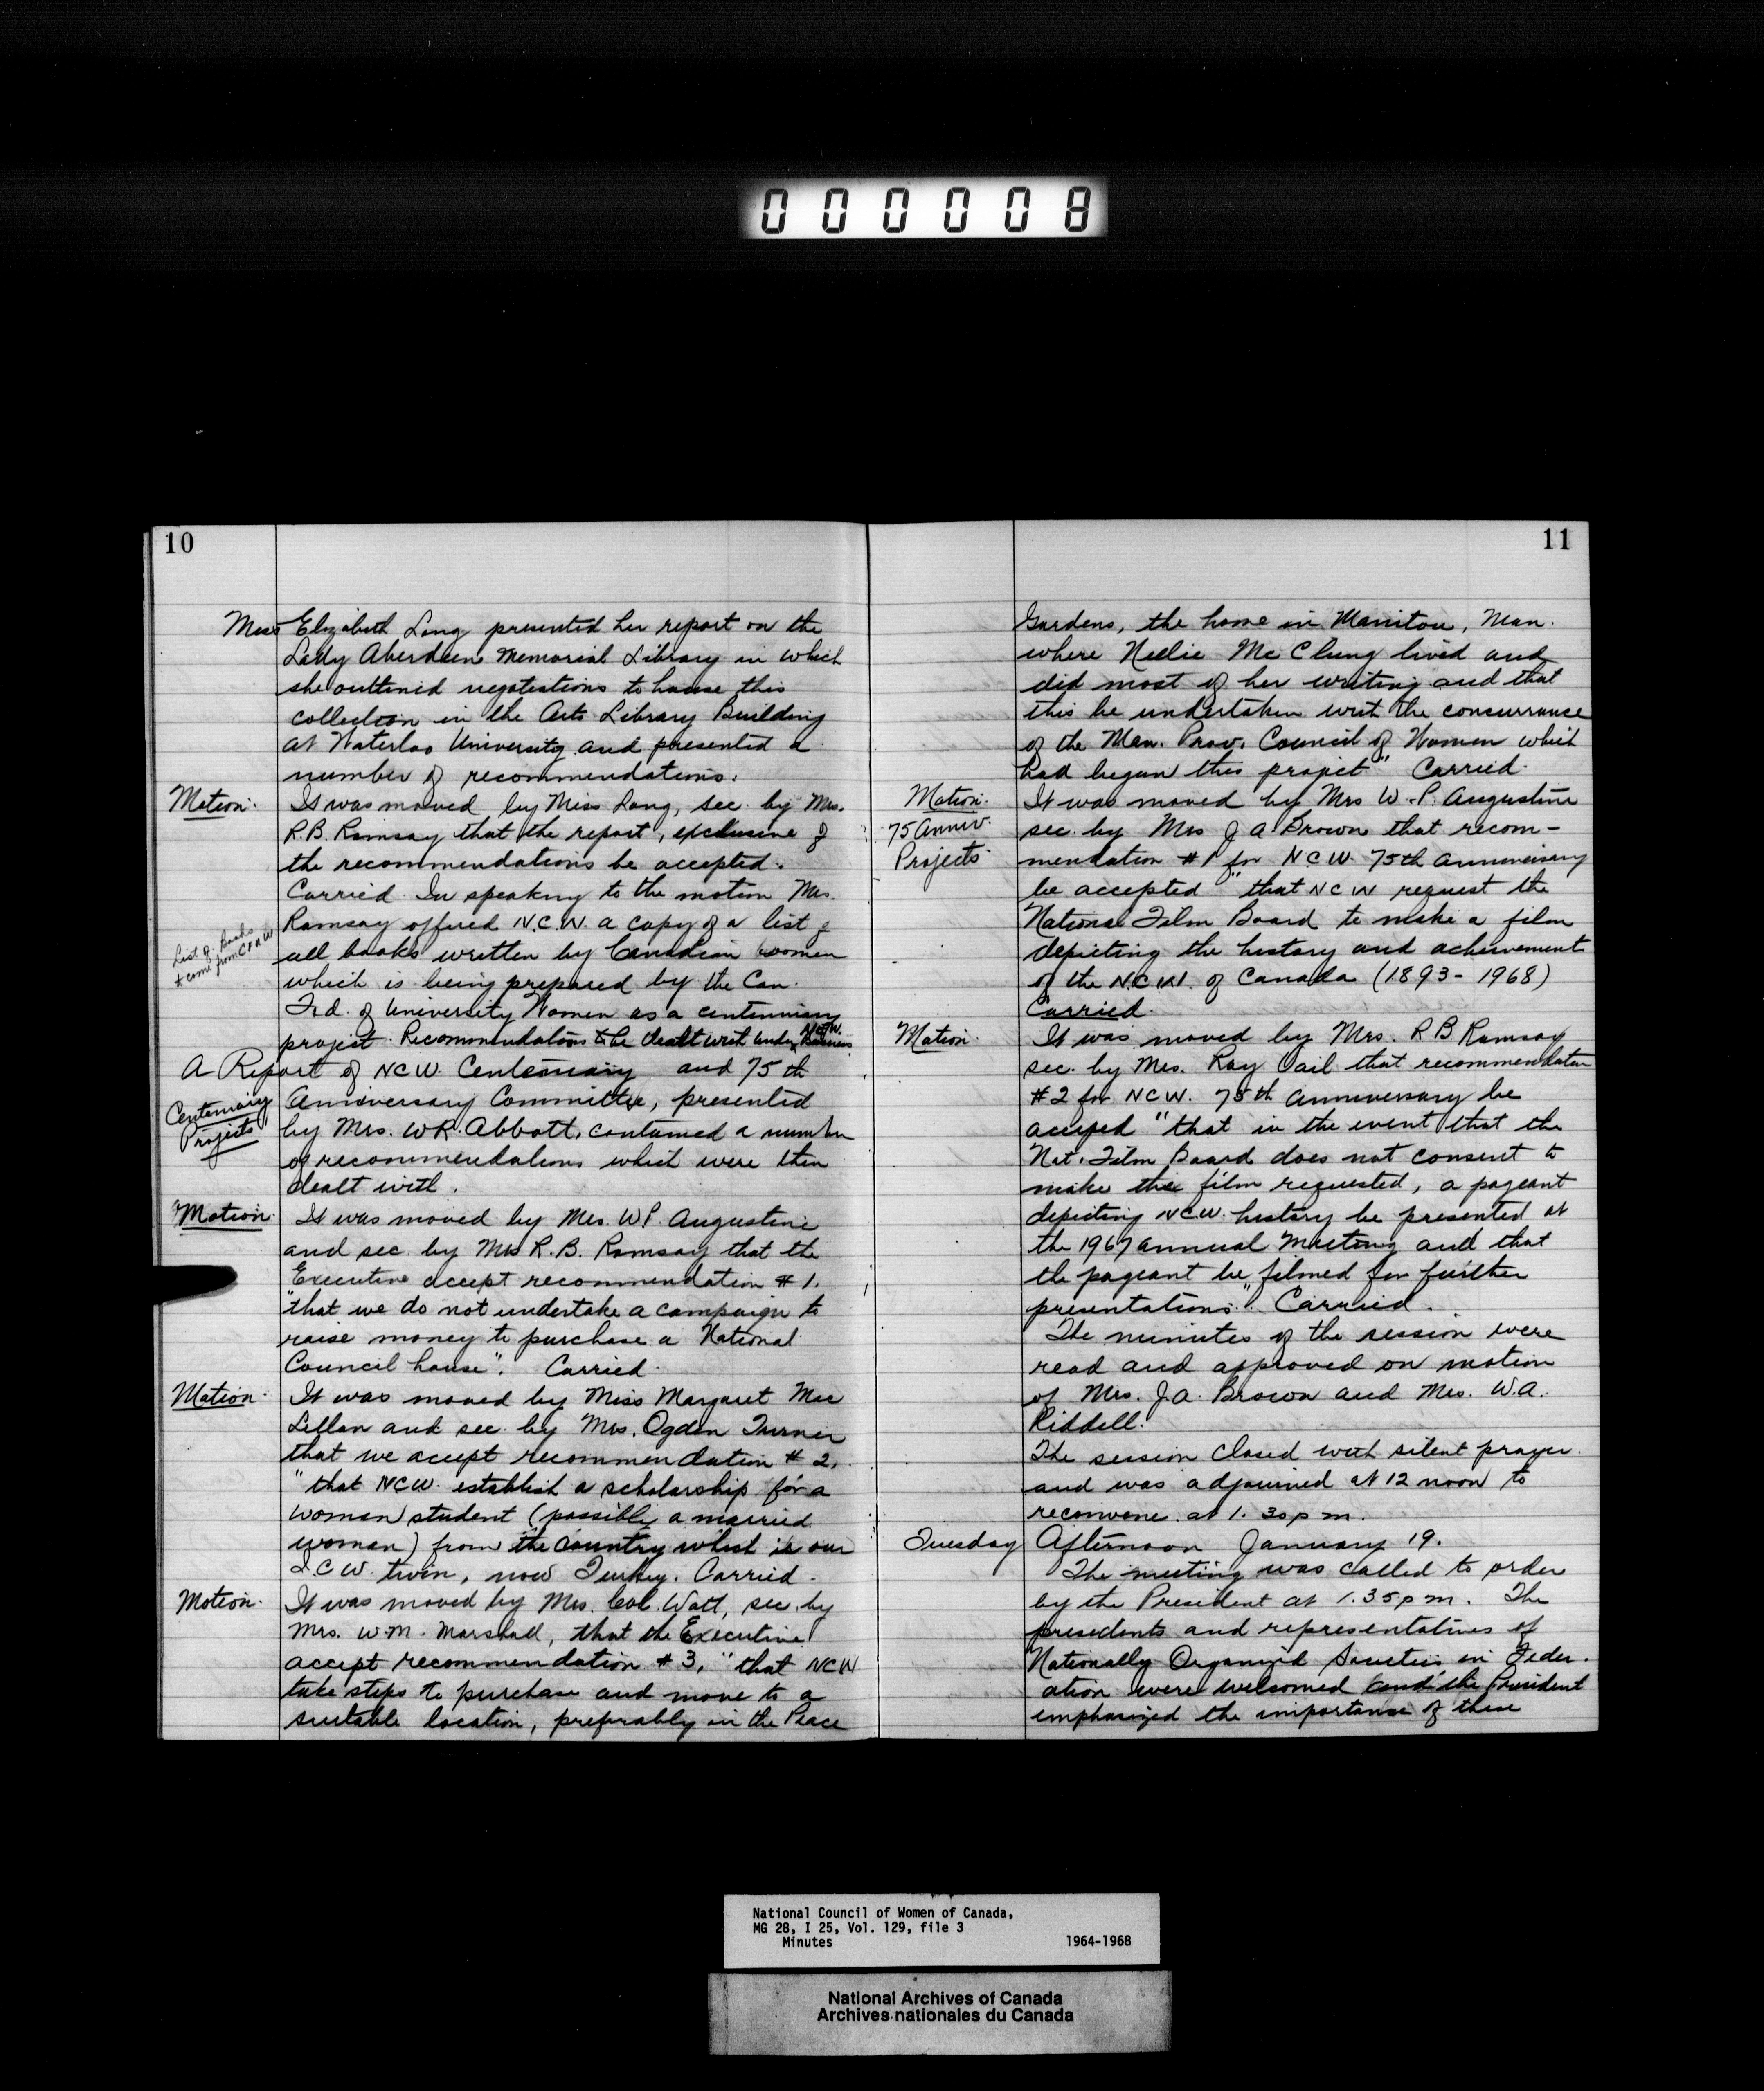 000008
10
Miss Elizabeth Long presented her report on the
Lady Aberdeen Memorial Library in which
she outlined negotiations to house this
collection in the Arts Library Building
at Waterloo University and presented a
number of recommendations.
Motion. It was moved by Miss Long, sec. by Mrs.
R.B. Ramsay that the report, exclusive of
the recommendations be accepted.
Carried. In speaking to the motion Mrs.
Ramsay offered N.C.W. a copy of a list of
List of Books
to come from CFUW
all books written by Canadian women
which is being prepared by the Can.
Fed. of University Women as a centenniary
project. Recommendations to be dealt with under New Business.
A Report of NCW Centenniary and 75th
Centenniary
Projects
Anniversary Committee, presented
by Mrs. W.R. Abbott, contained a number
of recommendations which were then
dealt with.
Motion. It was moved by Mrs. W P. Augustine
and sec. by Mrs R.B. Ramsay that the
Executive accept recommendation #1.
"that we do not undertake a campaign to
raise money to purchase a National
Council house". Carried.
Motion. It was moved by Miss Margaret Mac
Lellan and sec. by Mrs. Ogden Turner
that we accept recommendation #2,
"that NCW. establish a scholarship for a
woman student (possibly a married
woman) from the country which is our
I.C.W. twin, now Turkey. Carried.
Motion. It was moved by Mrs. Col. Watt, sec. by
Mrs. W.M. Marshall, that the Executive
accept recommendation #3, "that NCW
take steps to purchase and move to a
suitable location, preferably in the Peace
11
Gardens, the home in Manitou, Man.
where Nellie McClung lived and
did most of her writing and that
this be undertaken with the concurrance
of the Man. Prov. Council of Women which
had began this project" Carried.
Motion. It was moved by Mrs W.P. Augustine
75 Anniv. sec. by Mrs J A Brown that recom-
Projects mendation #1 for N.C.W. 75th anniversary
be accepted "that NCW request the
National Film Board to make a film
depicting the history and achievements
of the N.C.W. of Canada (1893-1968)
Carried.
Motion. It was moved by Mrs. R B Ramsay
sec. by Mrs. Ray Vail that recommendation
#2 for NCW. 75th Anniversary be
accepted "that in the event that the
Nat. Film Board does not consent to
make the film requested, a pageant
depicting N.C.W. history be presented at
the 1967 annual Meeting and that
the pageant be filmed for further
presentations." Carried.
The minutes of the session were
read and approved on motion
of Mrs. J.A. Brown and Mrs. W.A.
Riddell.
The session closed with silent prayer
and was adjourned at 12 noon to
reconvene at 1.30 p m.
Tuesday Afternoon January 19.
The meeting was called to order
by the President at 1.35 p m. The
presidents and representatives of
Nationally Organized Societies in Feder-
ation were welcomed and the President
emphasized the importance of these
National Council of Women of Canada,
MG 28, I 25, Vol. 129, file 3
Minutes 1964-1968
National Archives of Canada
Archives nationales du Canada